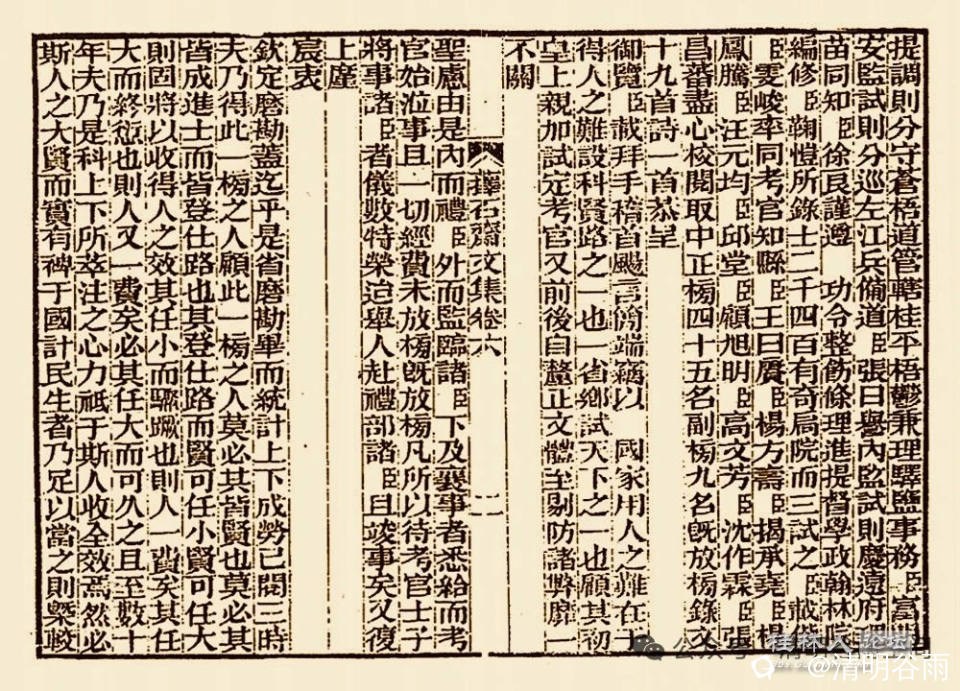 提調則分守蒼梧道管轄桂平梧鬱兼理驛鹽事務臣富
安監試則分巡左江兵備道臣張曰譽內監試則慶遠府
苗同知臣徐良謹遵　功令整飭條理進提督學政翰林院
編修臣鞠愷所錄士二千四百有奇扃院而三試之臣載偕
臣雯峻率同考官知縣臣王曰贗臣楊方壽臣揭承堯臣楊
鳳騰臣汪元均臣邱堂臣顧旭明臣高文芳臣沈作霖臣張
昌蕃盡心校閱取中正榜四十五名副榜九名既放榜錄文
十九首詩一首恭呈
御覽臣載拜手稽首颺言簡端竊以　國家用人之難在于
得人之難設科賢路之一也一省鄉試天下之一也顧其初
皇上親加試定考官又前後自釐正文體至剔防諸弊靡一
不關
蘀石齋文集卷六　二
聖慮由是內而禮臣外而監臨諸臣下及襄事者悉給而考
官始涖事且一切經費未放榜既放榜凡所以待考官士子
將事諸臣者儀數特榮迨舉人赴禮部諸臣且竣事矣又復
上塵
宸衷
欽定磨勘蓋迄乎是省磨勘畢而統計上下成勞已閱三時
夫乃得此一榜之人顧此一榜之人莫必其皆賢也莫必其
皆成進士而皆登仕路也其登仕路而賢可任小賢可任大
則固將以收得人之效其任小而驟蹶也則人一費矣其任
大而終愆也則人又一費矣必其任大而可久之且至數十
年夫乃是科上下所萃注之心力祗于斯人收全效焉然必
斯人之大賢而實有裨于國計民生者乃足以當之則槩較
桂林人论坛
@清明谷雨